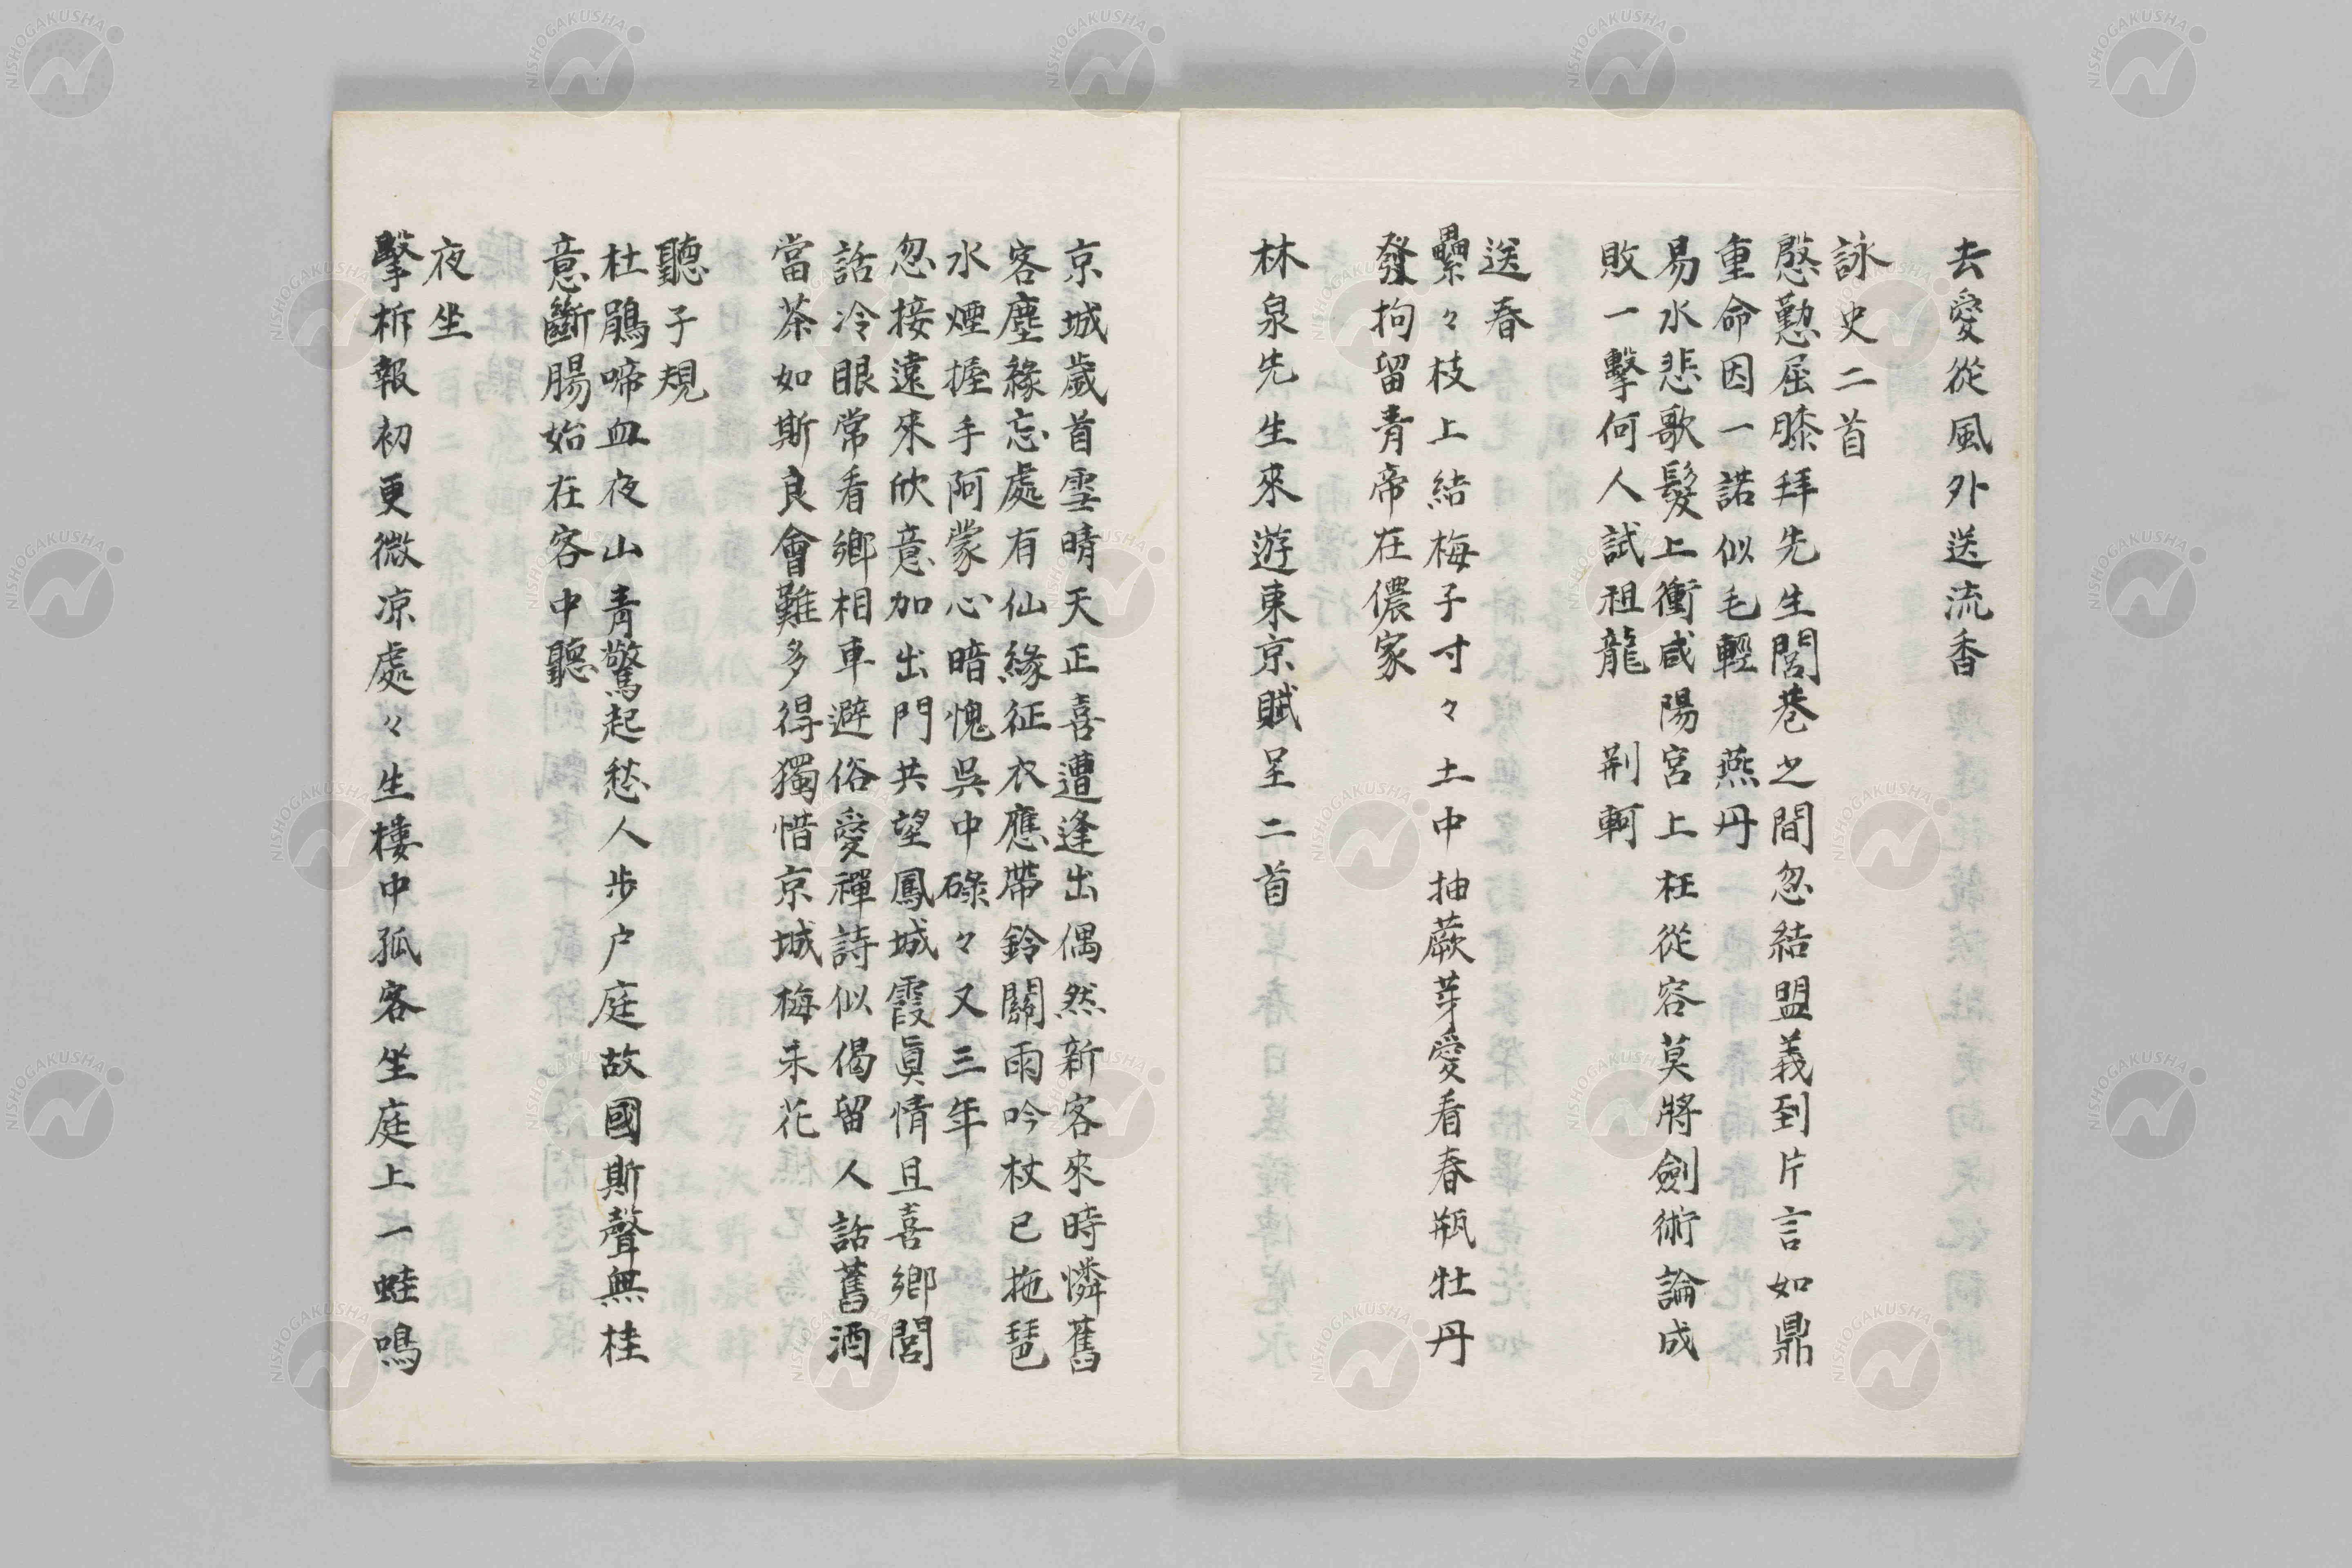 去愛從風外送流香
詠史二首
慇懃屈膝拜先生閭巷之間忽結盟義到片言如鼎
重命因一諾似毛輕　燕丹
易水悲歌髮上衝咸陽宮上枉從容莫將劍術論成
敗一擊何人試祖龍　荆軻
送春
纍々枝上結梅子寸々土中抽蕨芽愛看春瓶牡丹
發拘留青帝在儂家
林泉先生來遊東京賦呈二首
京城歲首雪晴天正喜遭逢出偶然新客來時憐舊
客塵緣忘處有仙緣征衣應帶鈴關雨吟杖已拖琶
水煙握手阿蒙心暗愧吳中碌々又三年
忽接遠來欣意加出門共望鳳城霞眞情且喜鄉閭
話冷眼常看鄉相車避俗愛禪詩似偈留人話舊酒
當茶如斯良會難多得獨惜京城梅未花
聽子規
杜鵑啼血夜山青驚起愁人步戶庭故國斯聲無桂
意斷腸始在客中聽
夜坐
擊柝報初更微凉處々生樓中孤客坐庭上一蛙鳴
NISHOGAKUSHA